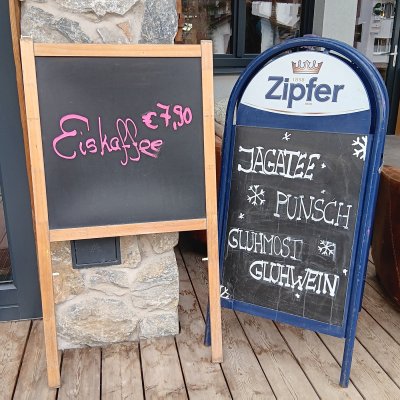 €7,90
Eiskaffee
Zipfer
JAGATEE
PUNSCH
GLÜHMOST
GLÜHWEIN